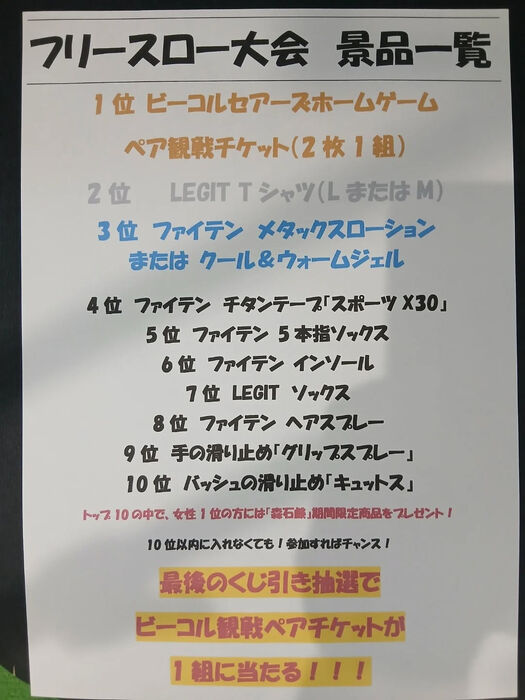 フリースロー大会 景品一覧
1位 ビーコルセアーズホームゲーム
ペア観戦チケット(2枚1組)
2位 LEGIT Tシャツ(LまたはM)
3位 ファイテン メタックスローション
または クール&ウォームジェル
4位 ファイテン チタンテープ「スポーツX30」
5位 ファイテン 5本指ソックス
6位 ファイテン インソール
7位 LEGIT ソックス
8位 ファイテン ヘアスプレー
9位 手の滑り止め「グリップスプレー」
10位 バッシュの滑り止め「キュットス」
トップ10の中で、女性1位の方には「森石鹸」期間限定商品をプレゼント!
10位以内に入れなくても!参加すればチャンス!
最後のくじ引き抽選で
ビーコル観戦ペアチケットが
1組に当たる!!!